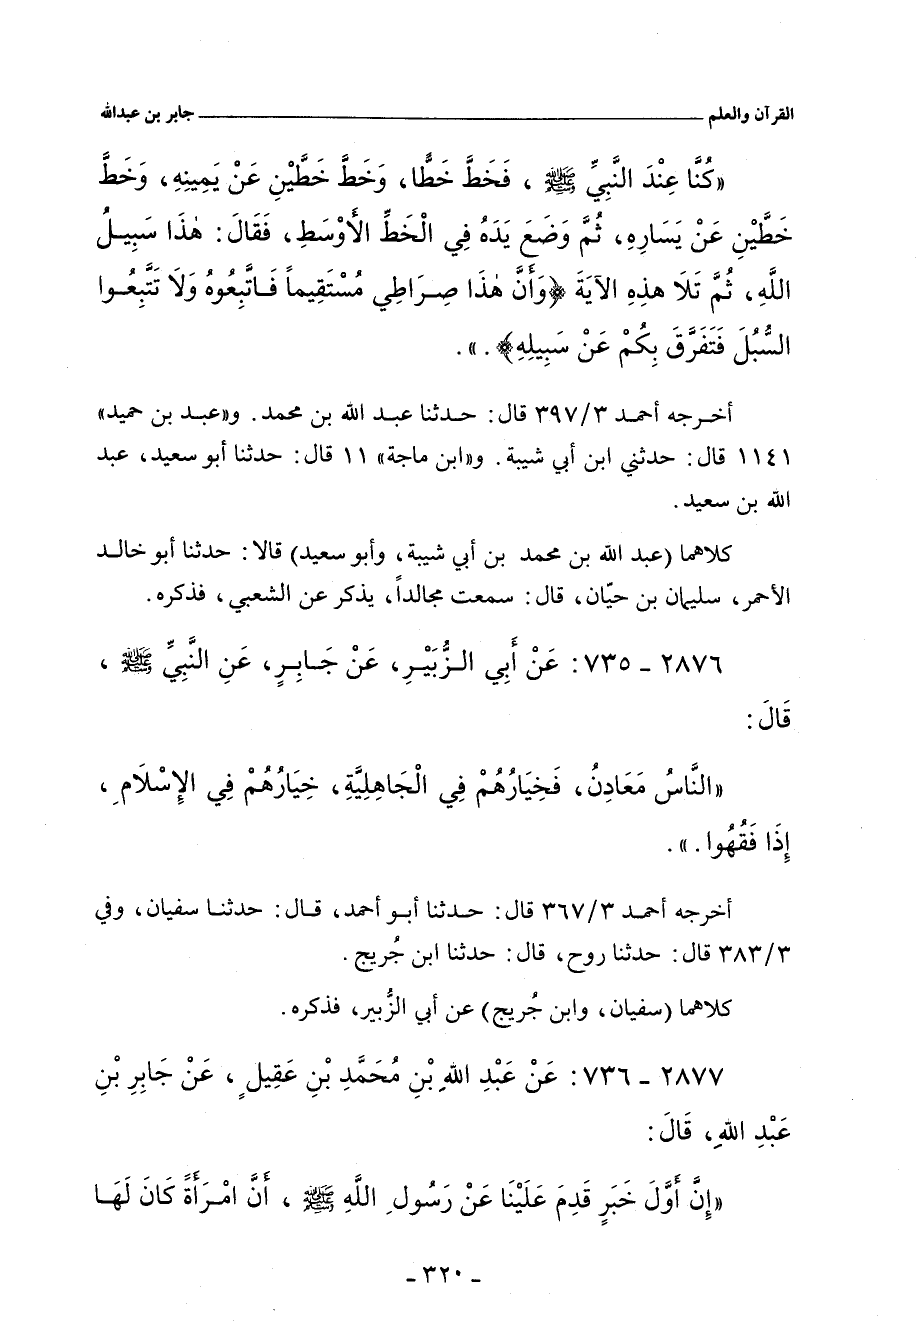 القرآن والعلم ــــــــــــــــــــــــــــــــــــــــــــــــ جابر بن عبدالله
«كُنَّا عِنْدَ النَّبِيِّ ﷺ ، فَخَطَّ خَطًّا، وَخَطَّ خَطَّيْنِ عَنْ يَمِينِهِ، وَخَطَّ
خَطَّيْنِ عَنْ يَسَارِهِ، ثُمَّ وَضَعَ يَدَهُ فِي الْخَطِّ الأَوْسَطِ، فَقَالَ: هٰذَا سَبِيـلُ
اللَّهِ، ثُمَّ تَلَا هذِهِ الآيَةَ ﴿وَأَنَّ هٰذَا صِـرَاطِي مُسْتَقِيماً فَـاتَّبِعُوهُ وَلَا تَتَّبِعُـوا
السُّبُلَ فَتَفَرَّقَ بِكُمْ عَنْ سَبِيلِهِ﴾ . ».
أخـرجه أحمـد ٣٩٧/٣ قال: حـدثنا عبـد الله بن محمد. و«عبـد بن حميد»
١١٤١ قال: حدثني ابن أبي شيبة. و«ابن ماجة» ١١ قال: حدثنا أبو سعيد، عبد
الله بن سعيد.
كلاهما (عبد الله بن محمد بن أبي شيبة، وأبو سعيد) قالا: حدثنا أبو خالـد
الأحمر، سليمان بن حيّان، قال: سمعت مجالداً، يذكر عن الشعبي، فذكره.
٢٨٧٦ - ٧٣٥: عَنْ أَبِي الـزُّبَيْـرِ، عَنْ جَـابِـرٍ، عَنِ النَّبِيِّ ﷺ ،
قَالَ:
«النَّاسُ مَعَادِنُ، فَخِيَارُهُمْ فِي الْجَاهِلِيَّةِ، خِيَارُهُمْ فِي الإِسْلَامِ ،
إِذَا فَقُهُوا. ».
أخرجه أحمـد ٣٦٧/٣ قال: حـدثنا أبـو أحمد، قـال: حدثنـا سفيان، وفي
٣٨٣/٣ قال: حدثنا روح، قال: حدثنا ابن جُريج.
كلاهما (سفيان، وابن جُريج) عن أبي الزُّبير، فذكره.
٢٨٧٧ - ٧٣٦: عَنْ عَبْدِ اللهِ بْنِ مُحَمَّدِ بْنِ عَقِيلٍ ، عَنْ جَابِرِ بْنِ
عَبْدِ اللهِ، قَالَ:
«إِنَّ أَوَّلَ خَبَرٍ قَدِمَ عَلَيْنَا عَنْ رَسُولِ اللَّهِ ﷺ ، أَنَّ امْـرَأَةً كَانَ لَهَـا
- ٣٢٠ -